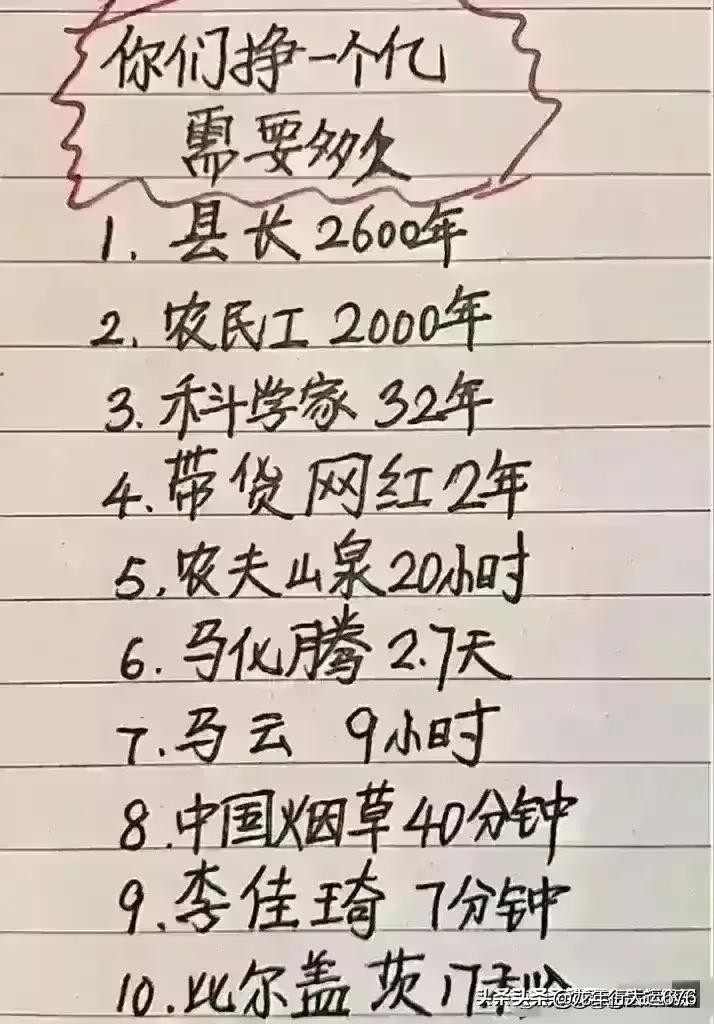 你们挣一个亿
需要多久
1. 县长 2600年
2. 农民工 2000年
3. 科学家 32年
4. 带货网红 2年
5. 农夫山泉 20小时
6. 马化腾 2.7天
7. 马云 9小时
8. 中国烟草 40分钟
9. 李佳琦 7分钟
10. 比尔盖茨 17秒
头条 @龙年行大运676